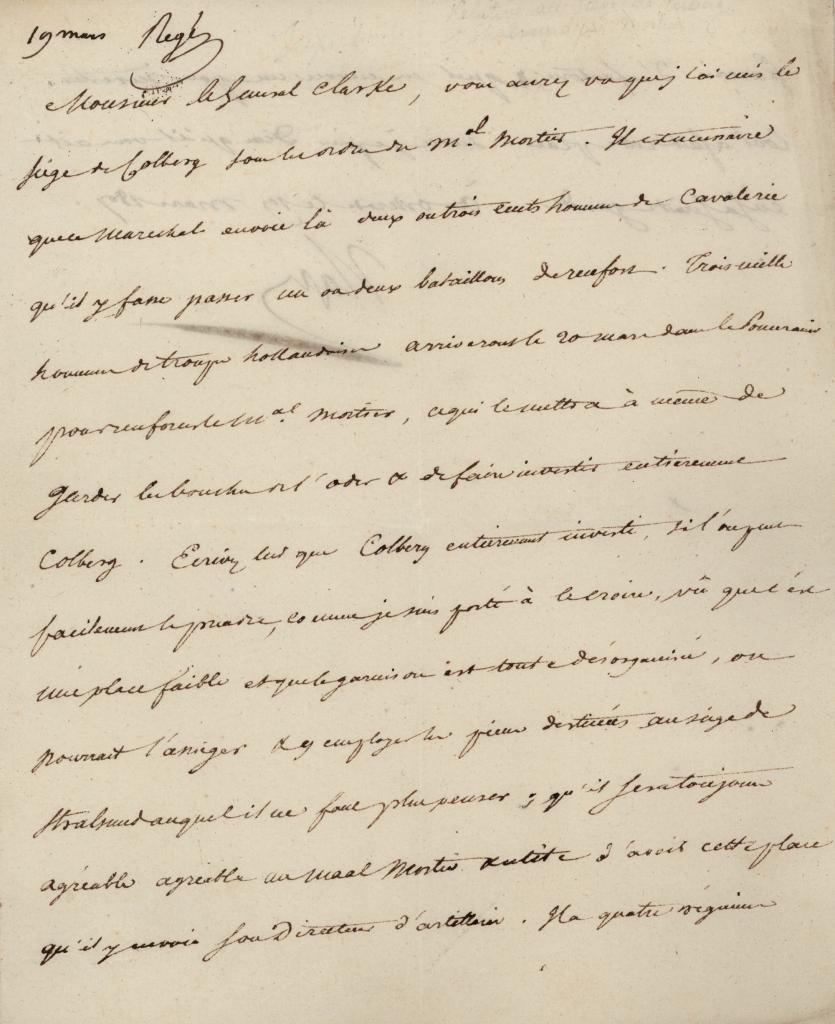 19 mars Regé
Monsieur le Général Clarke, vous aurez vu que j'ai mis le
siège de Colberg sous les ordres du Mal. Mortier. Il est nécessaire
que ce Maréchal envoie là deux ou trois cents hommes de Cavalerie
qu'il y fasse passer un ou deux bataillons de renfort. Trois mille
hommes de troupe hollandaise arriveront le 20 mars dans la Pomeranie
pour renforcer le Mal. Mortier, ce qui le mettra à même de
garder les bouches de l'oder & de faire investir entierement
Colberg. Ecrivez lui que Colberg entierement investi, si l'on peut
facilement le prendre, comme je suis porté à le croire, vû que c'est
une place faible et que la garnison est toute désorganisée, on
pourrait l'assieger & y employer les pieces destinées au siége de
Stralsund auquel il ne faut plus penser; qu'il sera toujours
agréable agréable au maal Mortier d'avoir cette place
qu'il y envoie son Directeur d'artillerie. Il a quatre régimens